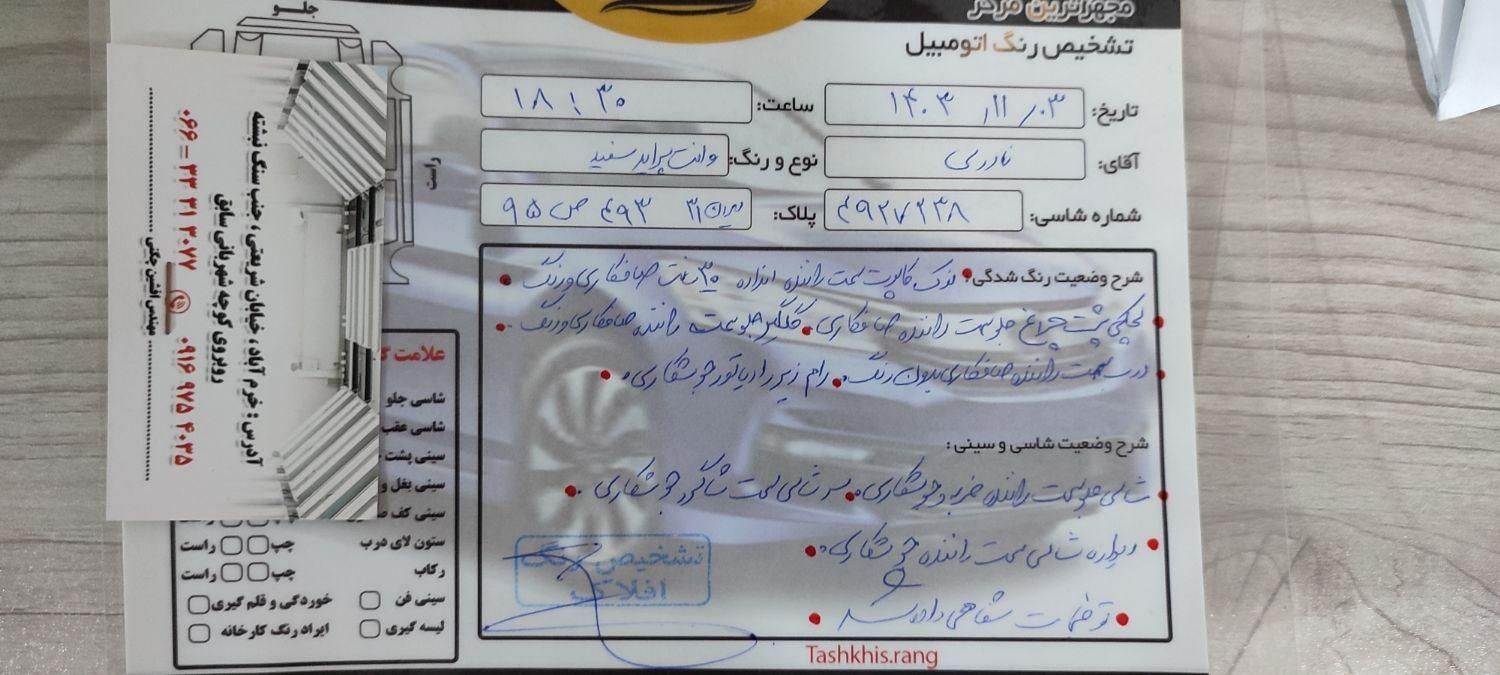 مجهزترین مرکز
تشخیص رنگ اتومبیل
تاریخ: ۱۴۰۳/۱۱/۰۳
ساعت: ۱۸:۳۰
آقای: نادری
نوع و رنگ: وانت پراید سفید
شماره شاسی:
پلاک: ایران ۳۱ ۴۹۳ ص ۹۵
شرح وضعیت رنگ شدگی: نوک کاپوت سمت راننده اندازه ۳۰ سانت صافکاری و رنگ
لچکی پشت چراغ جلو سمت راننده صافکاری. گلگیر جلو سمت راننده صافکاری و رنگ.
درب سمت راننده صافکاری بدون رنگ. رام زیر رادیاتور جوشکاری.
شرح وضعیت شاسی و سینی:
شاسی جلو سمت راننده ضربه و جوشکاری. سر شاسی سمت شاگرد جوشکاری
دیواره شاسی سمت راننده جوشکاری.
توضیحات شفاهی داده شد
تشخیص رنگ
افلاک
Tashkhis.rang
جلو
راست
علامت
شاسی جلو
شاسی عقب
سینی پشت
سینی بغل و
سینی کف
ستون لای درب چپ راست
رکاب چپ راست
سینی فن خوردگی و قلم گیری
لیسه گیری ایراد رنگ کارخانه
آدرس: خرم آباد، خیابان شریعتی، جنب سنگ نبشته
روبروی کوچه شهربانی سابق
۰۶۶ - ۳۳ ۳۱ ۳۰۷۷ ۰۹۱۶ ۹۷۵ ۴۰۳۵
مهندس افشین چگنی